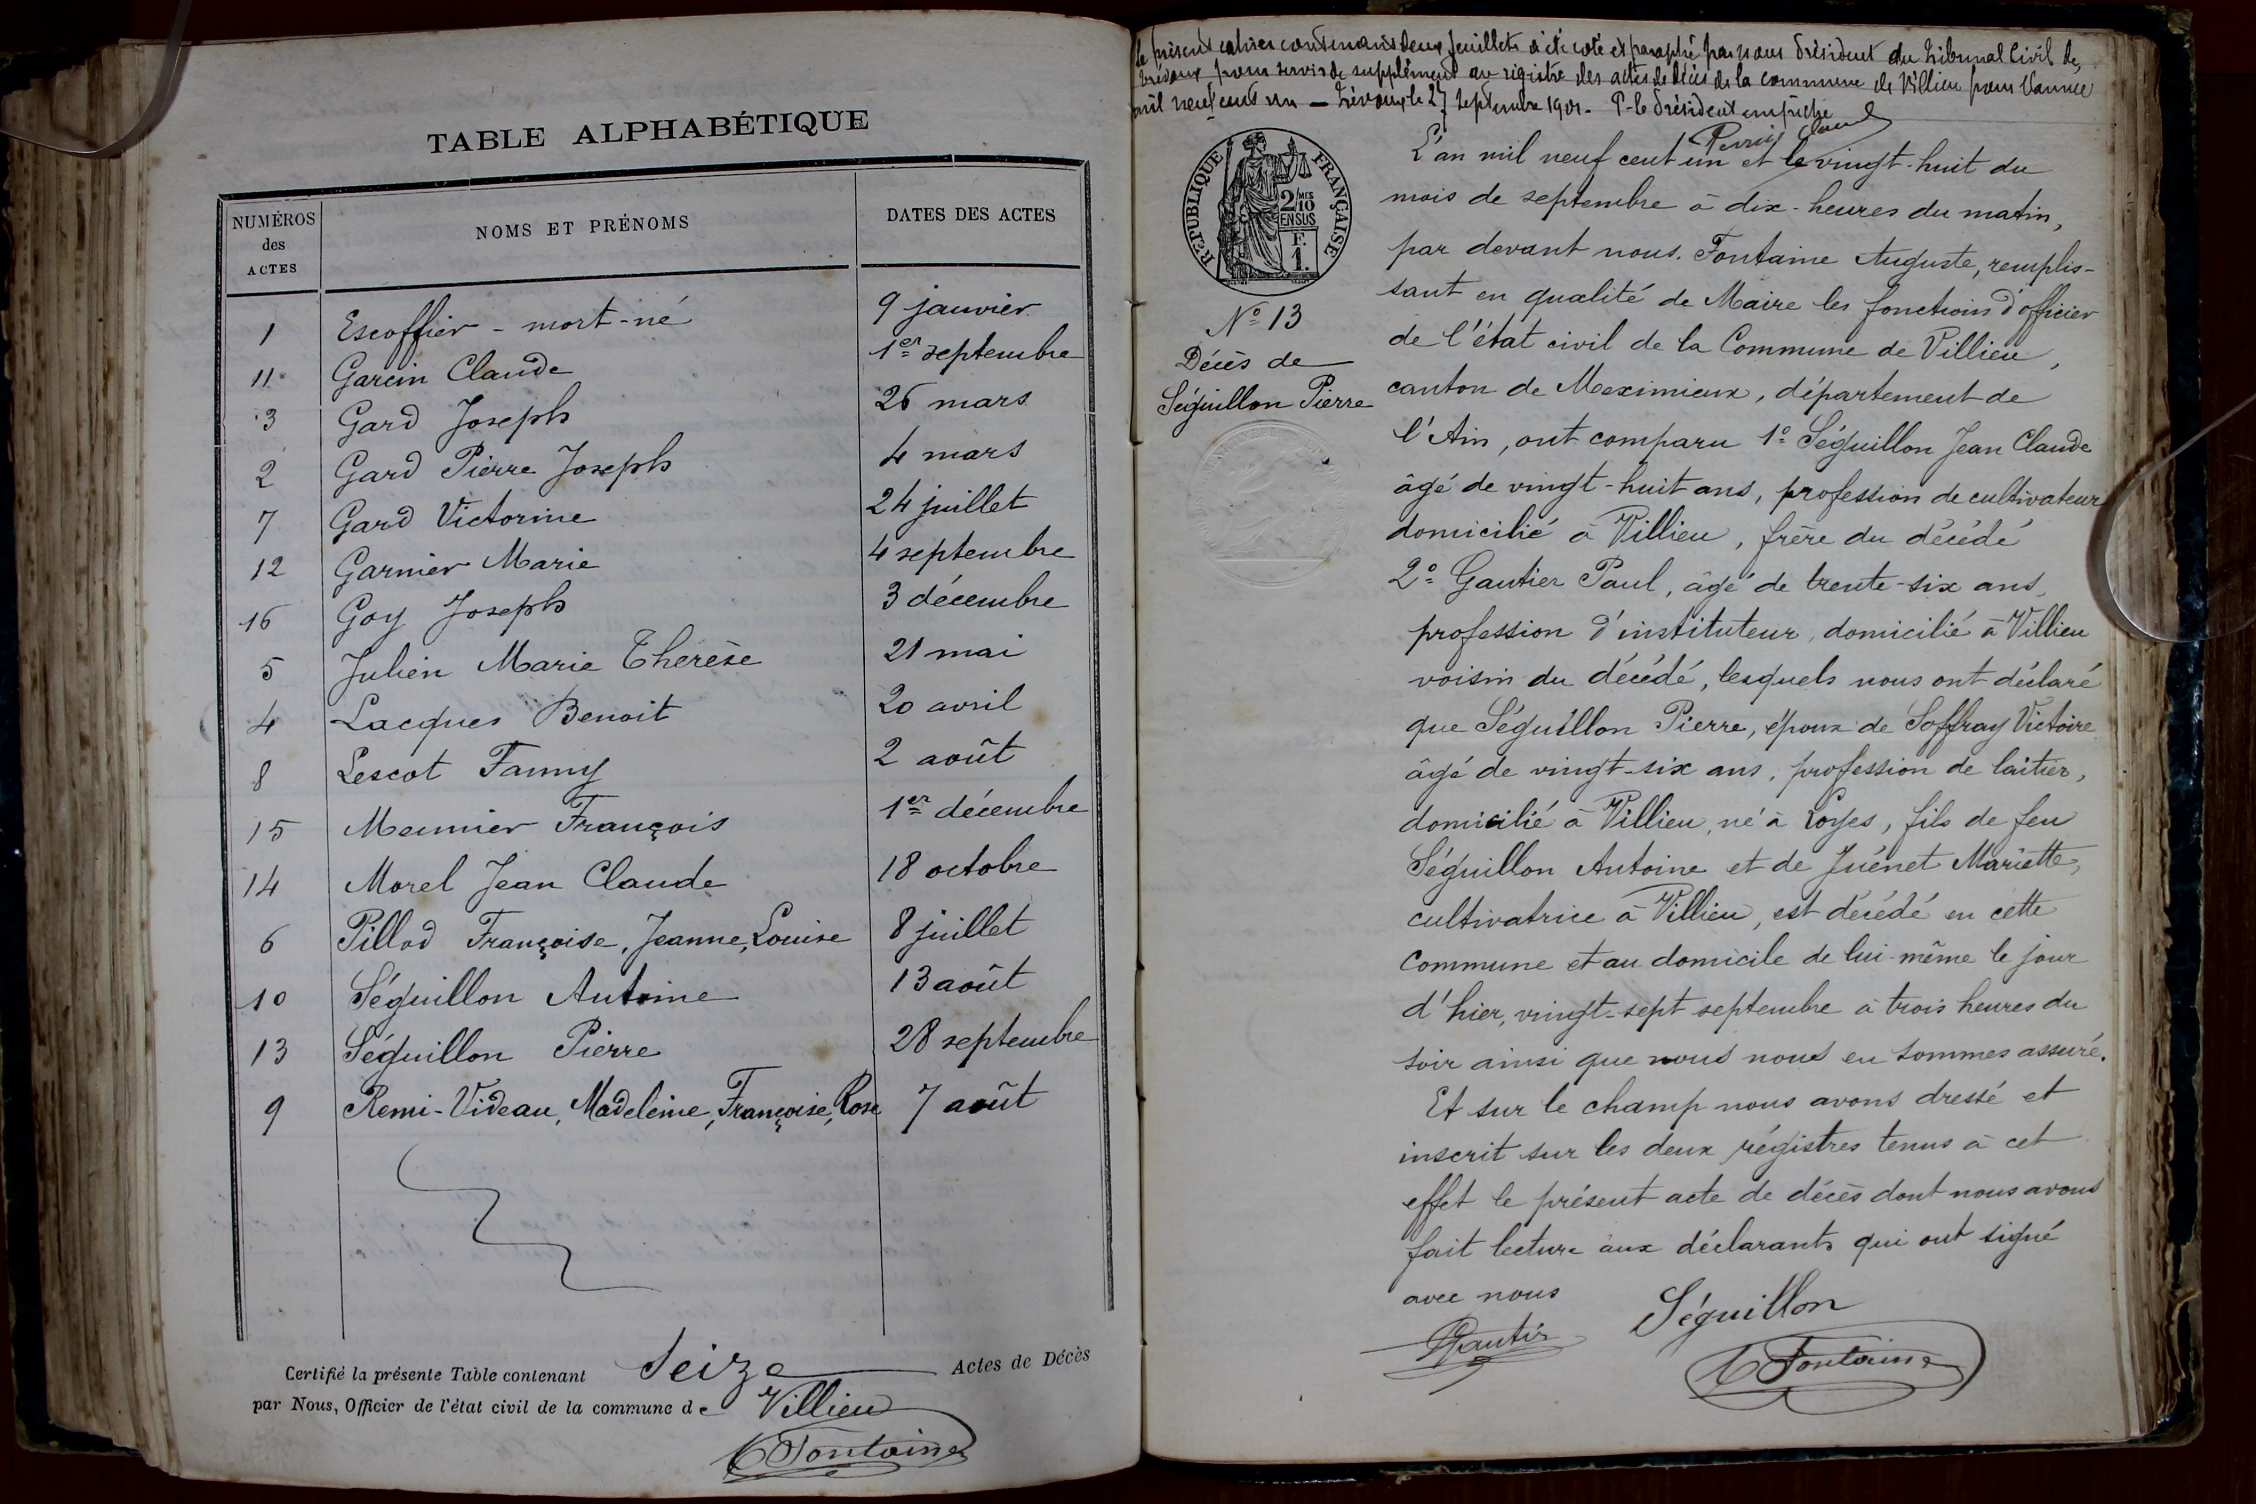 TABLE ALPHABÉTIQUE
NUMÉROS des ACTES
NOMS ET PRÉNOMS
DATES DES ACTES
1 Escoffier - mort-né 9 janvier
11 Garcin Claude 1er septembre
3 Gard Joseph 26 mars
2 Gard Pierre Joseph 4 mars
7 Gard Victorine 24 juillet
12 Garnier Marie 4 septembre
16 Goy Joseph 3 décembre
5 Julien Marie Therèse 21 mai
4 Lacques Benoit 20 avril
8 Lescot Fanny 2 août
15 Meunier François 1er décembre
14 Morel Jean Claude 18 octobre
6 Pillod Françoise, Jeanne, Louise 8 juillet
10 Séguillon Antoine 13 août
13 Séguillon Pierre 28 septembre
9 Remi-Videau, Madeleine, Françoise, Rose 7 août
Certifié la présente Table contenant Seize Actes de Décès
par Nous, Officier de l'état civil de la commune de Villieu
Fontaine
Le présent cahier contenant deux feuillets a été coté et paraphé par nous Président du Tribunal Civil de
Trévoux pour servir de supplément au registre des actes de décès de la commune de Villieu pour l'année
mil neuf cent un — Trévoux le 27 septembre 1901. P. le Président empêché
RÉPUBLIQUE FRANÇAISE
2/10 MES
EN SUS
F.
1.
N° 13
Décès de
Séguillon Pierre
L'an mil neuf cent un et le vingt-huit du
mois de septembre à dix-heures du matin,
par devant nous. Fontaine Auguste, remplis-
sant en qualité de Maire les fonctions d'officier
de l'état civil de la Commune de Villieu,
canton de Meximieux, département de
l'Ain, ont comparu 1° Séguillon Jean Claude
âgé de vingt-huit ans, profession de cultivateur
domicilié à Villieu, frère du décédé
2° Gautier Paul, âgé de trente-six ans,
profession d'instituteur, domicilié à Villieu
voisin du décédé, lesquels nous ont déclaré
que Séguillon Pierre, époux de Soffray Victoire
âgé de vingt-six ans, profession de laitier,
domicilié à Villieu, né à Loyes, fils de feu
Séguillon Antoine et de Juénet Mariette,
cultivatrice à Villieu, est décédé en cette
commune et au domicile de lui-même le jour
d'hier, vingt-sept septembre à trois heures du
soir ainsi que nous nous en sommes assuré.
Et sur le champ nous avons dressé et
inscrit sur les deux régistres tenus à cet
effet le présent acte de décès dont nous avons
fait lecture aux déclarants qui ont signé
avec nous
Séguillon
Gautier
Fontaine